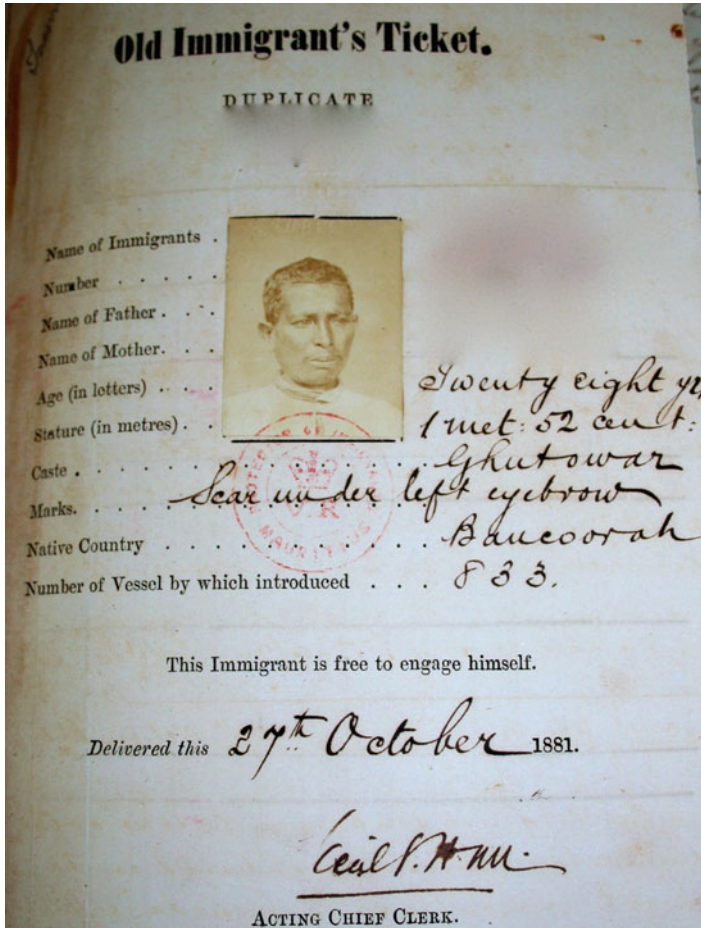 Old Immigrant's Ticket.
DUPLICATE
Name of Immigrants .
Number . . . . .
Name of Father . . .
Name of Mother. . .
Age (in letters) . . . Twenty eight yrs
Stature (in metres) . . 1 met: 52 cent:
Caste . . . . . . . . . . . . . Ghutowar
Marks. . . . Scar under left eyebrow
Native Country . . . . . . . . . . Bancoorah
Number of Vessel by which introduced . . . 833.
MAURITIUS
This Immigrant is free to engage himself.
Delivered this 27th October 1881.
ACTING CHIEF CLERK.